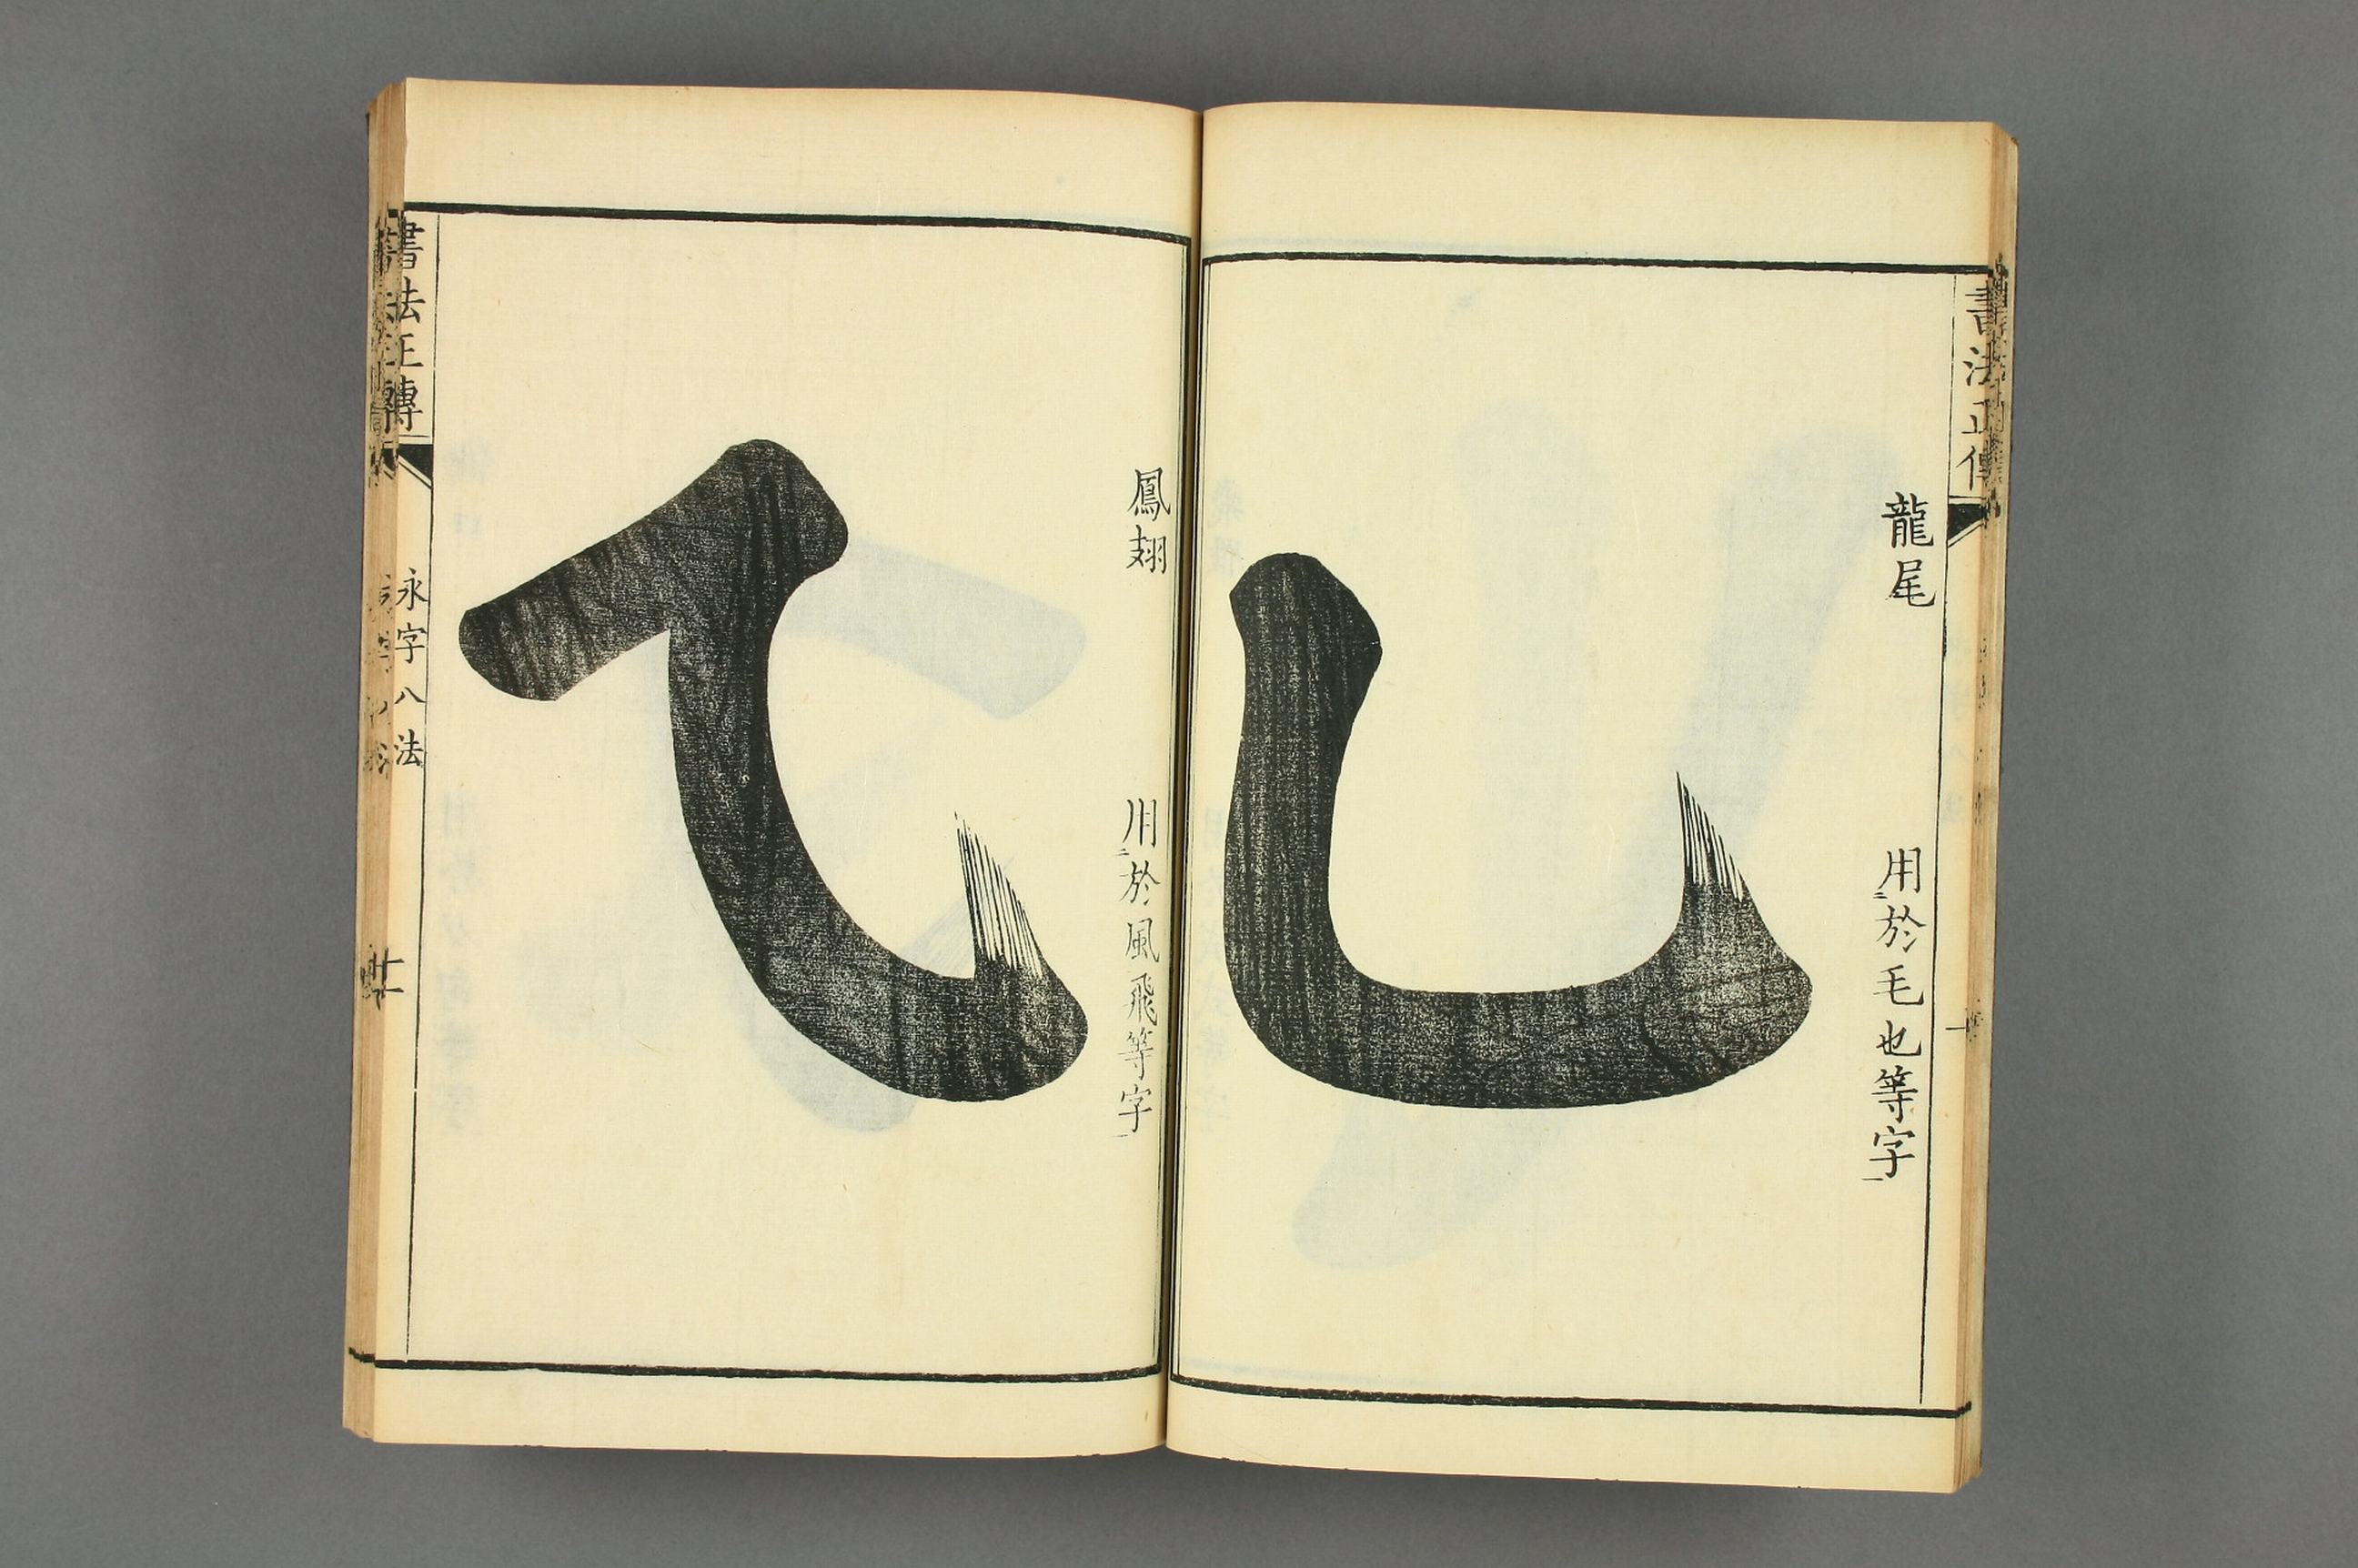 書法正傳
龍尾
用於毛也等字
鳳翅
用於風飛等字
書法正傳
永字八法
廿一